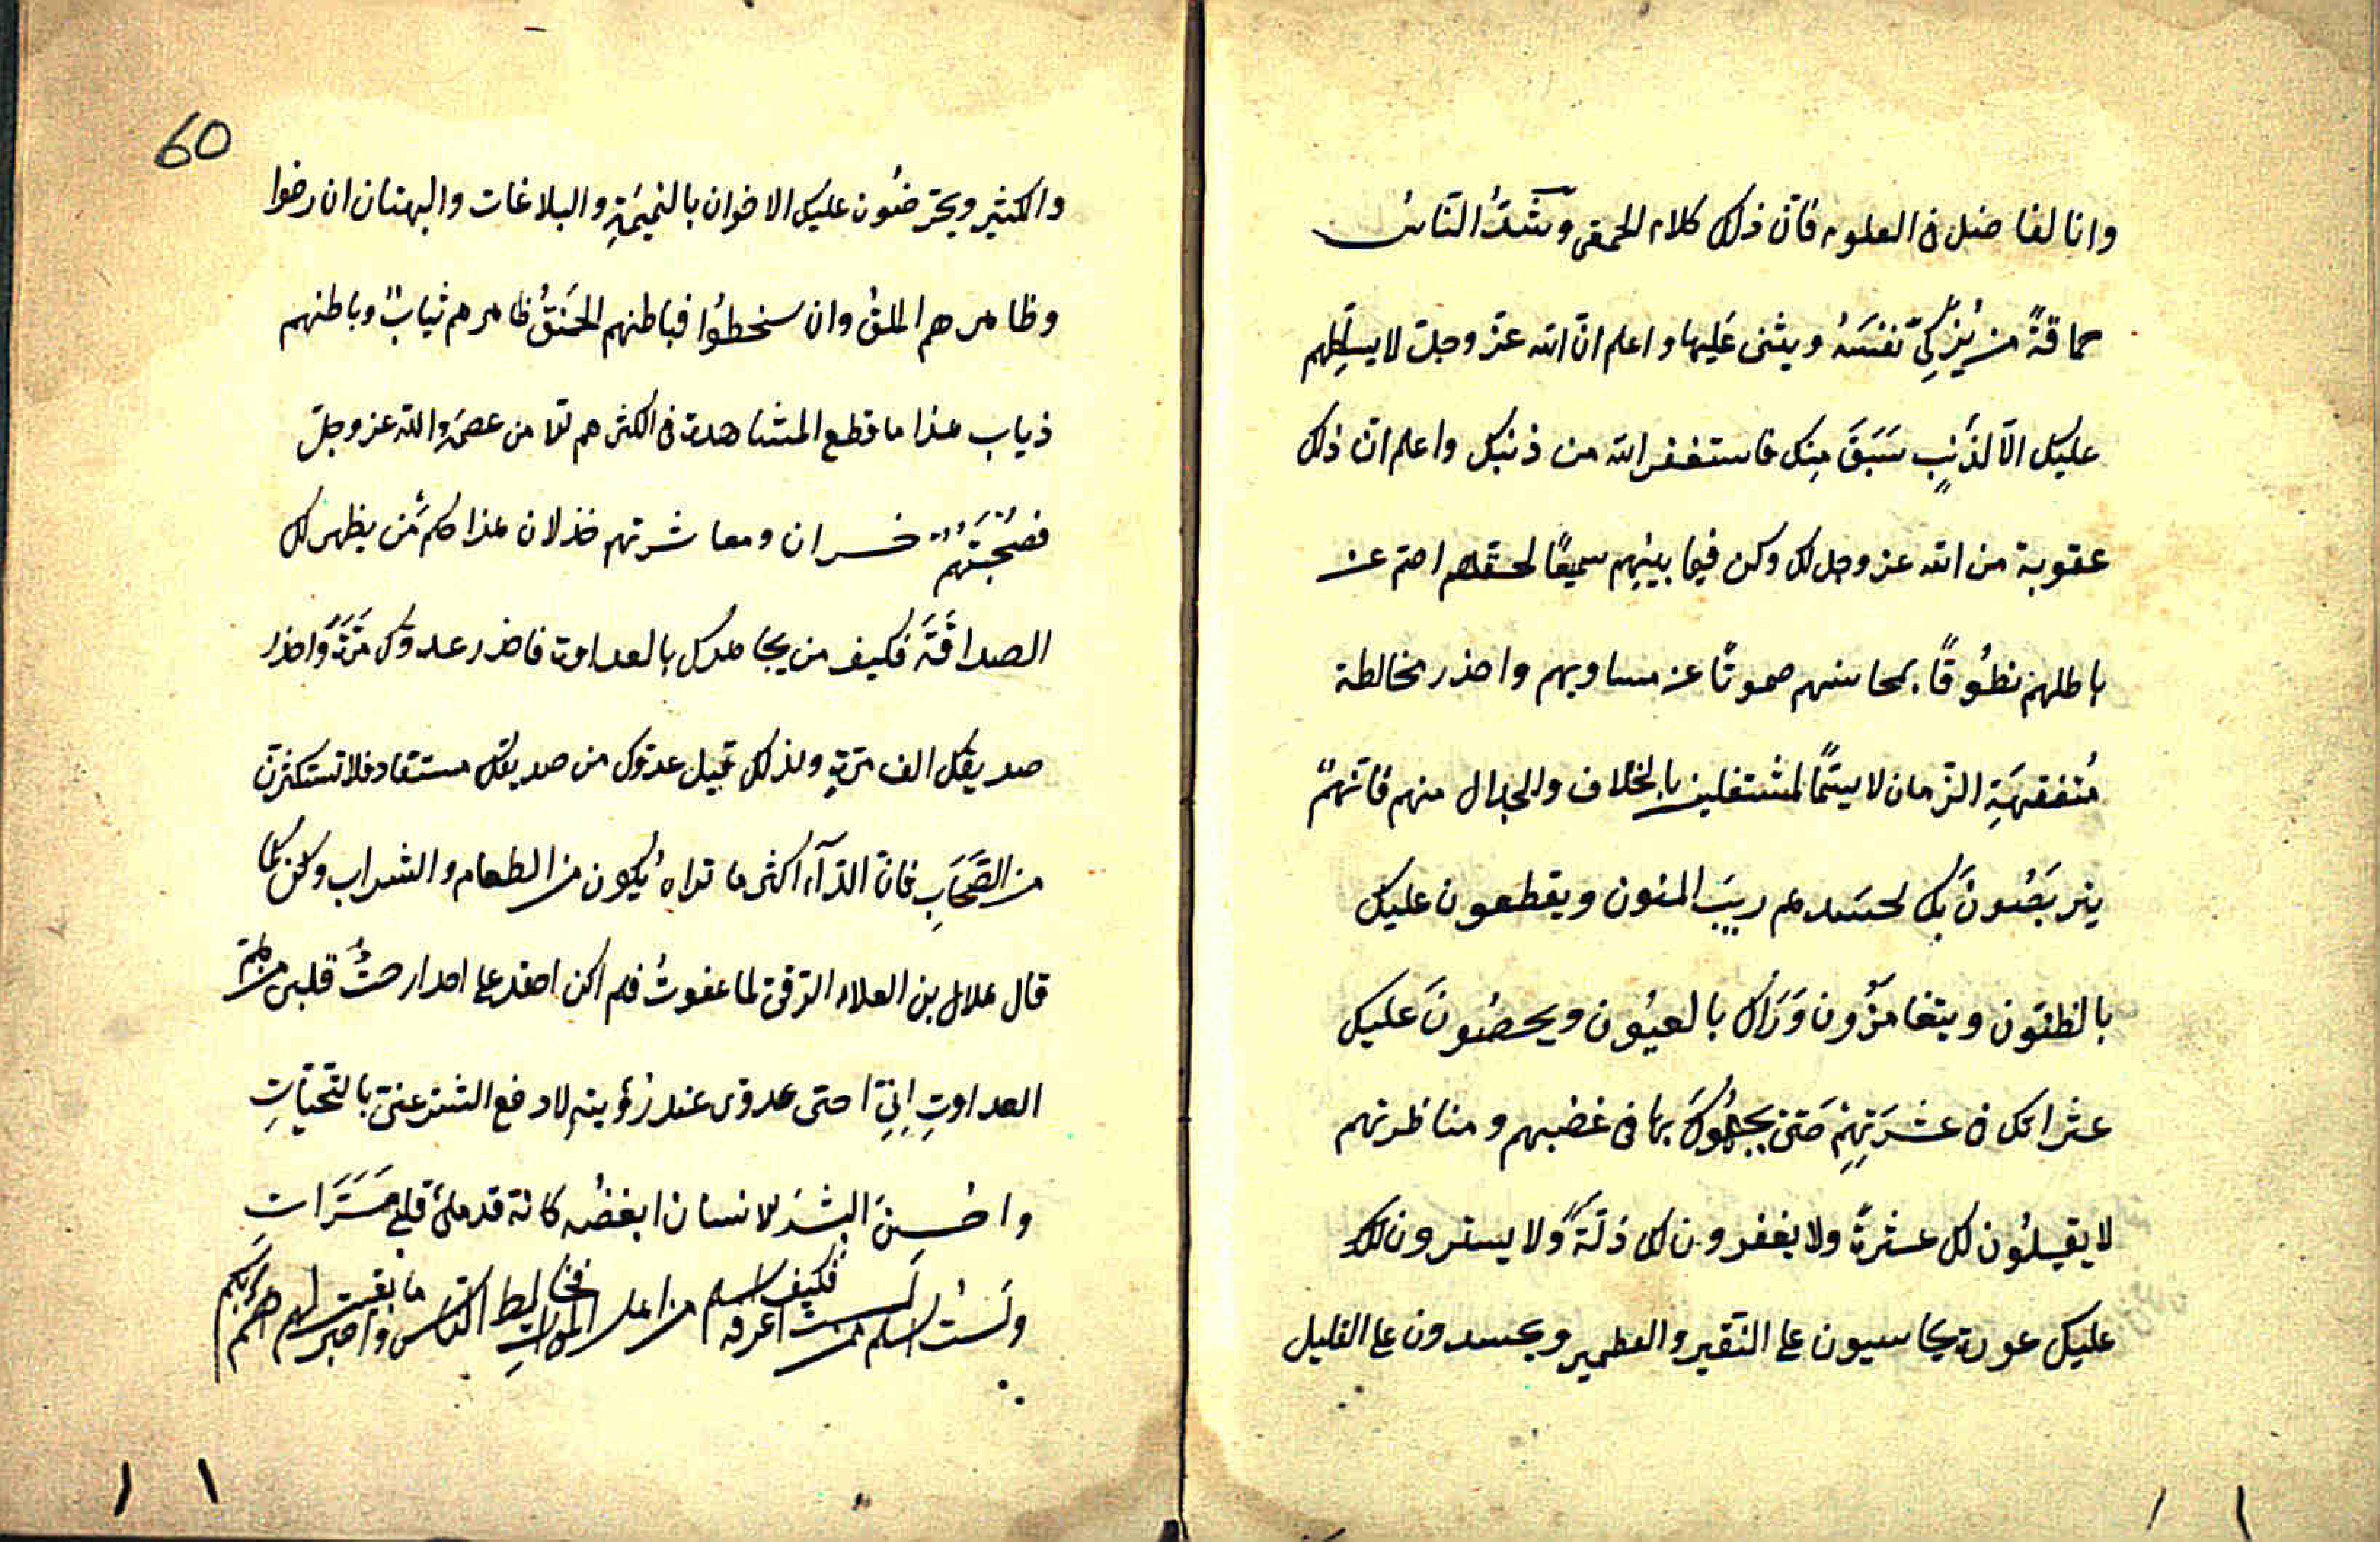 وانا لفاضل فى العلوم فانّ ذلك كلام الحمقى وشدُّ النّاس
حماقةً من يُزكّى نفسَهُ ويثنى عَليها واعلم انّ الله عزّ وجلّ لا يسلّطهم
عليك الّا لذنبٍ سَبَقَ مِنك فاستغفر الله من ذنبك واعلم انّ ذلك
عقوبة من الله عزوجل لك وكن فيما بينهم سميعًا لحقهم اصم عن
باطلهم نطوُقًا بمحاسنهم صموتًا عن مساويهم واحذر مخالطة
مُتفقهَةِ الزّمان لا سيّمًا لمشتغلين بالخلاف والجدال منهم فانّهمّ
يتربَصُونَ بك لحسَدهم ريبَ المنون ويقطعون عليك
بالظنّون ويتغامزُون وَرَاك بالعيُون ويحصُونَ عليك
عثراتك فى عشرَتِهِم حَتىّ يجبهُوكَ بها فى غضبهم ومناظرتهم
لا يقيلُون لك عثرةً ولا يغفرون لك زلّةً ولا يسترون لك
عليك عورة يحاسبون على النّقير والقطمير ويحسدون على القليل
60
والكثير ويحرّضُون عليك الاخوان بالنميمَةِ والبلاغات والبهتان ان رضوا
وظاهرهم الملقُ وان سخطوُا فباطنهم الحَنَقُ ظاهرهم ثيابٌ وباطنهم
ذياب هذا ما قطع المشاهدة فى اكثرهم الا من عصمَه الله عز وجلّ
فصُحْبَتَهُم خسران ومعاشرتهم خذلان هذا حكم مَن يظهر لك
الصداقَةَ فكيف من يجاهدك بالعداوة فاحذر عدوّك مَرّةً واحذر
صديقك الف مرّةٍ ولذلك قيل عدوّك من صديقك مستفاد فلا تستكثرنّ
من الصّحَابِ فانّ الدّآء اكثر ما تراهُ يكون من الطعام والشراب وكن كما
قال هلال بن العلاء الرّقىّ لما عفوتُ فلم اكن احقد على احد ارحتُ قلبى من همّ
العداوتِ اِنىِّ احىّ عدوّى عند رُؤيتهِ لادفع الشّر عنىّ بالتّحيّاتِ
واحُسِنُ البشرَ للانسان ابغضُه كانّه قد ملئ قلبى مَسَرّاتِ
ولَستُ اسلم ممن لَست اعرفه فكيف اسلم من اهل المودّاتِ فخالِط النّاس واصبر ما بقيت لهم